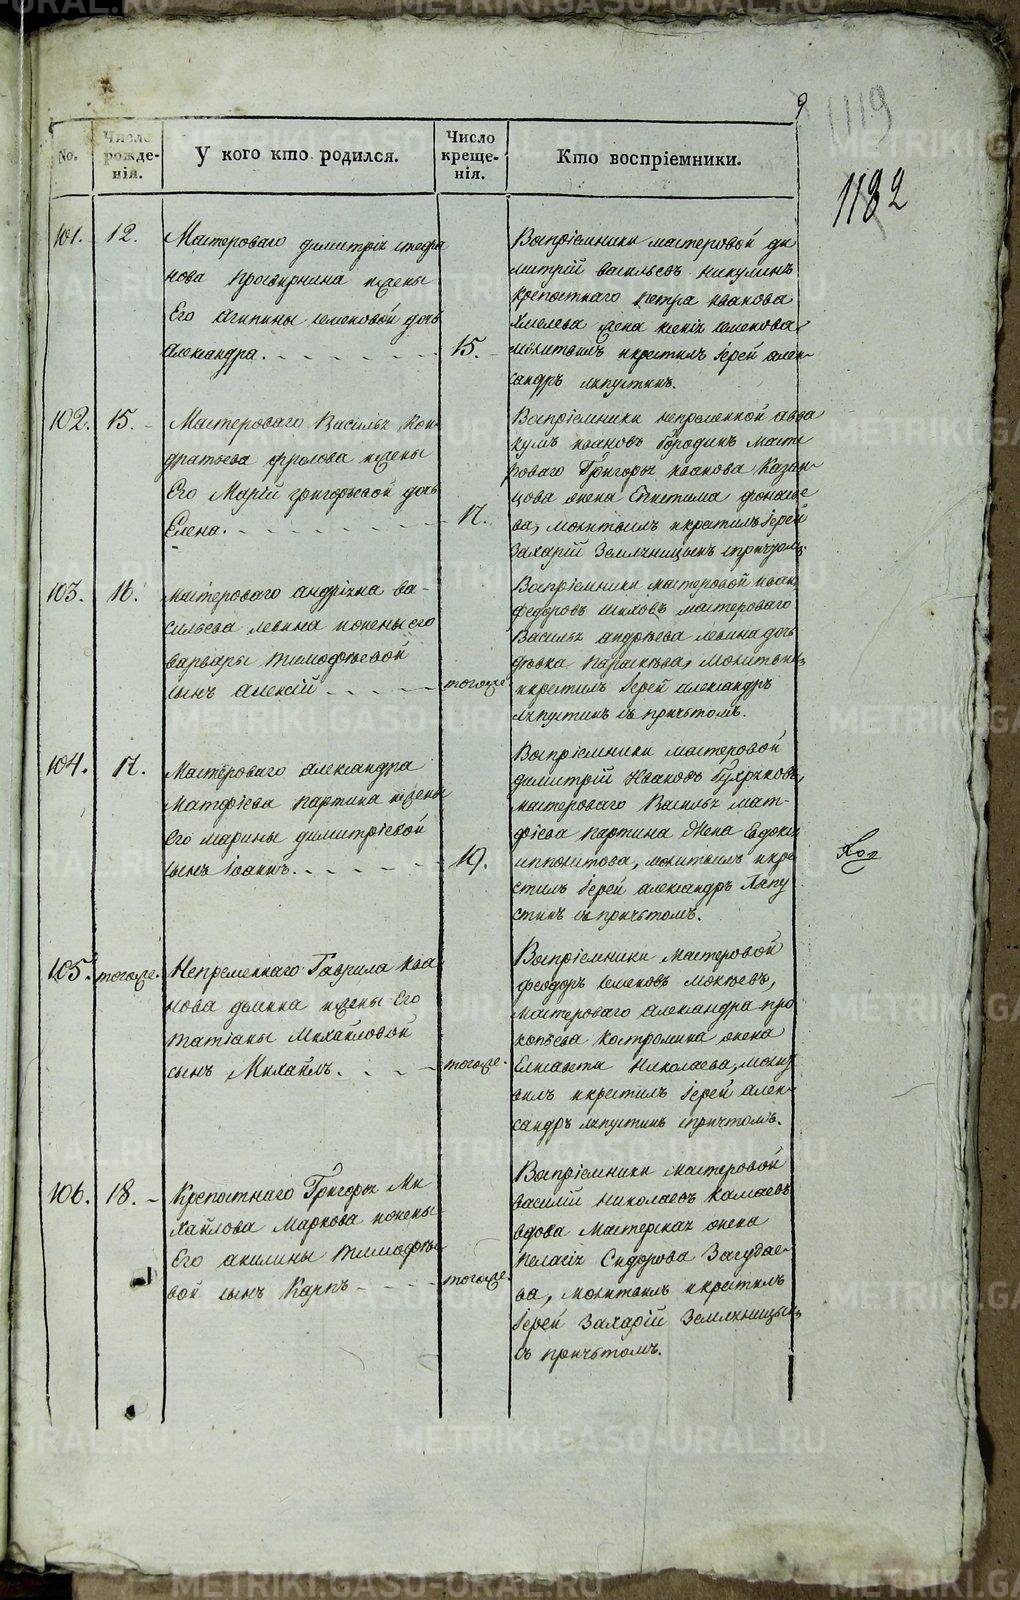 9
1119
1182
No.
Число рожденія.
У кого кто родился.
Число крещенія.
Кто воспріемники.
101.
12.
Мастероваго димитрія стефа
нова просвирнина жены
Его агипины семеновой дочь
александра.
15.
Воспріемники мастеровой ди
митрій васильевъ никулинъ
крепостнаго петра иванова
хмелева жена ксенія семенова
молитвилъ икрестилъ іерей алек-
сандръ ляпустинъ.
102.
15.
Мастероваго Василья Кон
дратьева фролова жены
Его Маріи григорьевой дочь
Елена.
17.
Воспріемники непременной авва
кумъ ивановъ Бородинъ масте
роваго Григорья иванова Казан-
цова жена
ва, молитвилъ икрестилъ іерей
Захарій Земляницынъ спричтомъ
103.
16.
мастероваго андріяна ва-
сильева левина ижены его
варвары тимофѣевой
сынъ алексій
тогоже
Воспріемники мастеровой иванъ
федоровъ шиховъ мастероваго
Василья андрѣева левина дочь
дѣвка параскѣва, молитвилъ
икрестилъ іерей александръ
ляпустинъ съ причтомъ.
104.
17.
Мастероваго александра
Матфіева партина жены
Его марины димитріевой
сынъ іоаннъ.
19.
Воспріемники мастеровой
димитрій Ивановъ
мастероваго Василья мат-
фіева партина жена Евдокія
ипполитова, молитвилъ икре
стилъ іерей александръ Ляпу
стинъ съ причтомъ.
105.
тогоже.
Непременнаго Гаврила Ива
нова демина жены Его
татіаны Михайловой
сынъ Михаилъ.
тогоже.
Воспріемники мастеровой
феодоръ семеновъ мокѣевъ,
мастероваго александра про
копьева костромина жена
Елисавета Николаева, молит
вилъ икрестилъ іерей алек-
сандръ ляпустинъ спричтомъ.
106.
18.
Крепостнаго Григорья Ми
хайлова Маркова ижены
Его акилины тимофѣе
вой сынъ Карпъ
тогоже.
Воспріемники мастеровой
василій николаевъ камаевъ
вдова мастерская жена
пелагія Сидорова Загудае-
ва, молитвилъ икрестилъ
іерей Захарій Земляницынъ
съ причтомъ.
METRIKI.GASO-URAL.RU